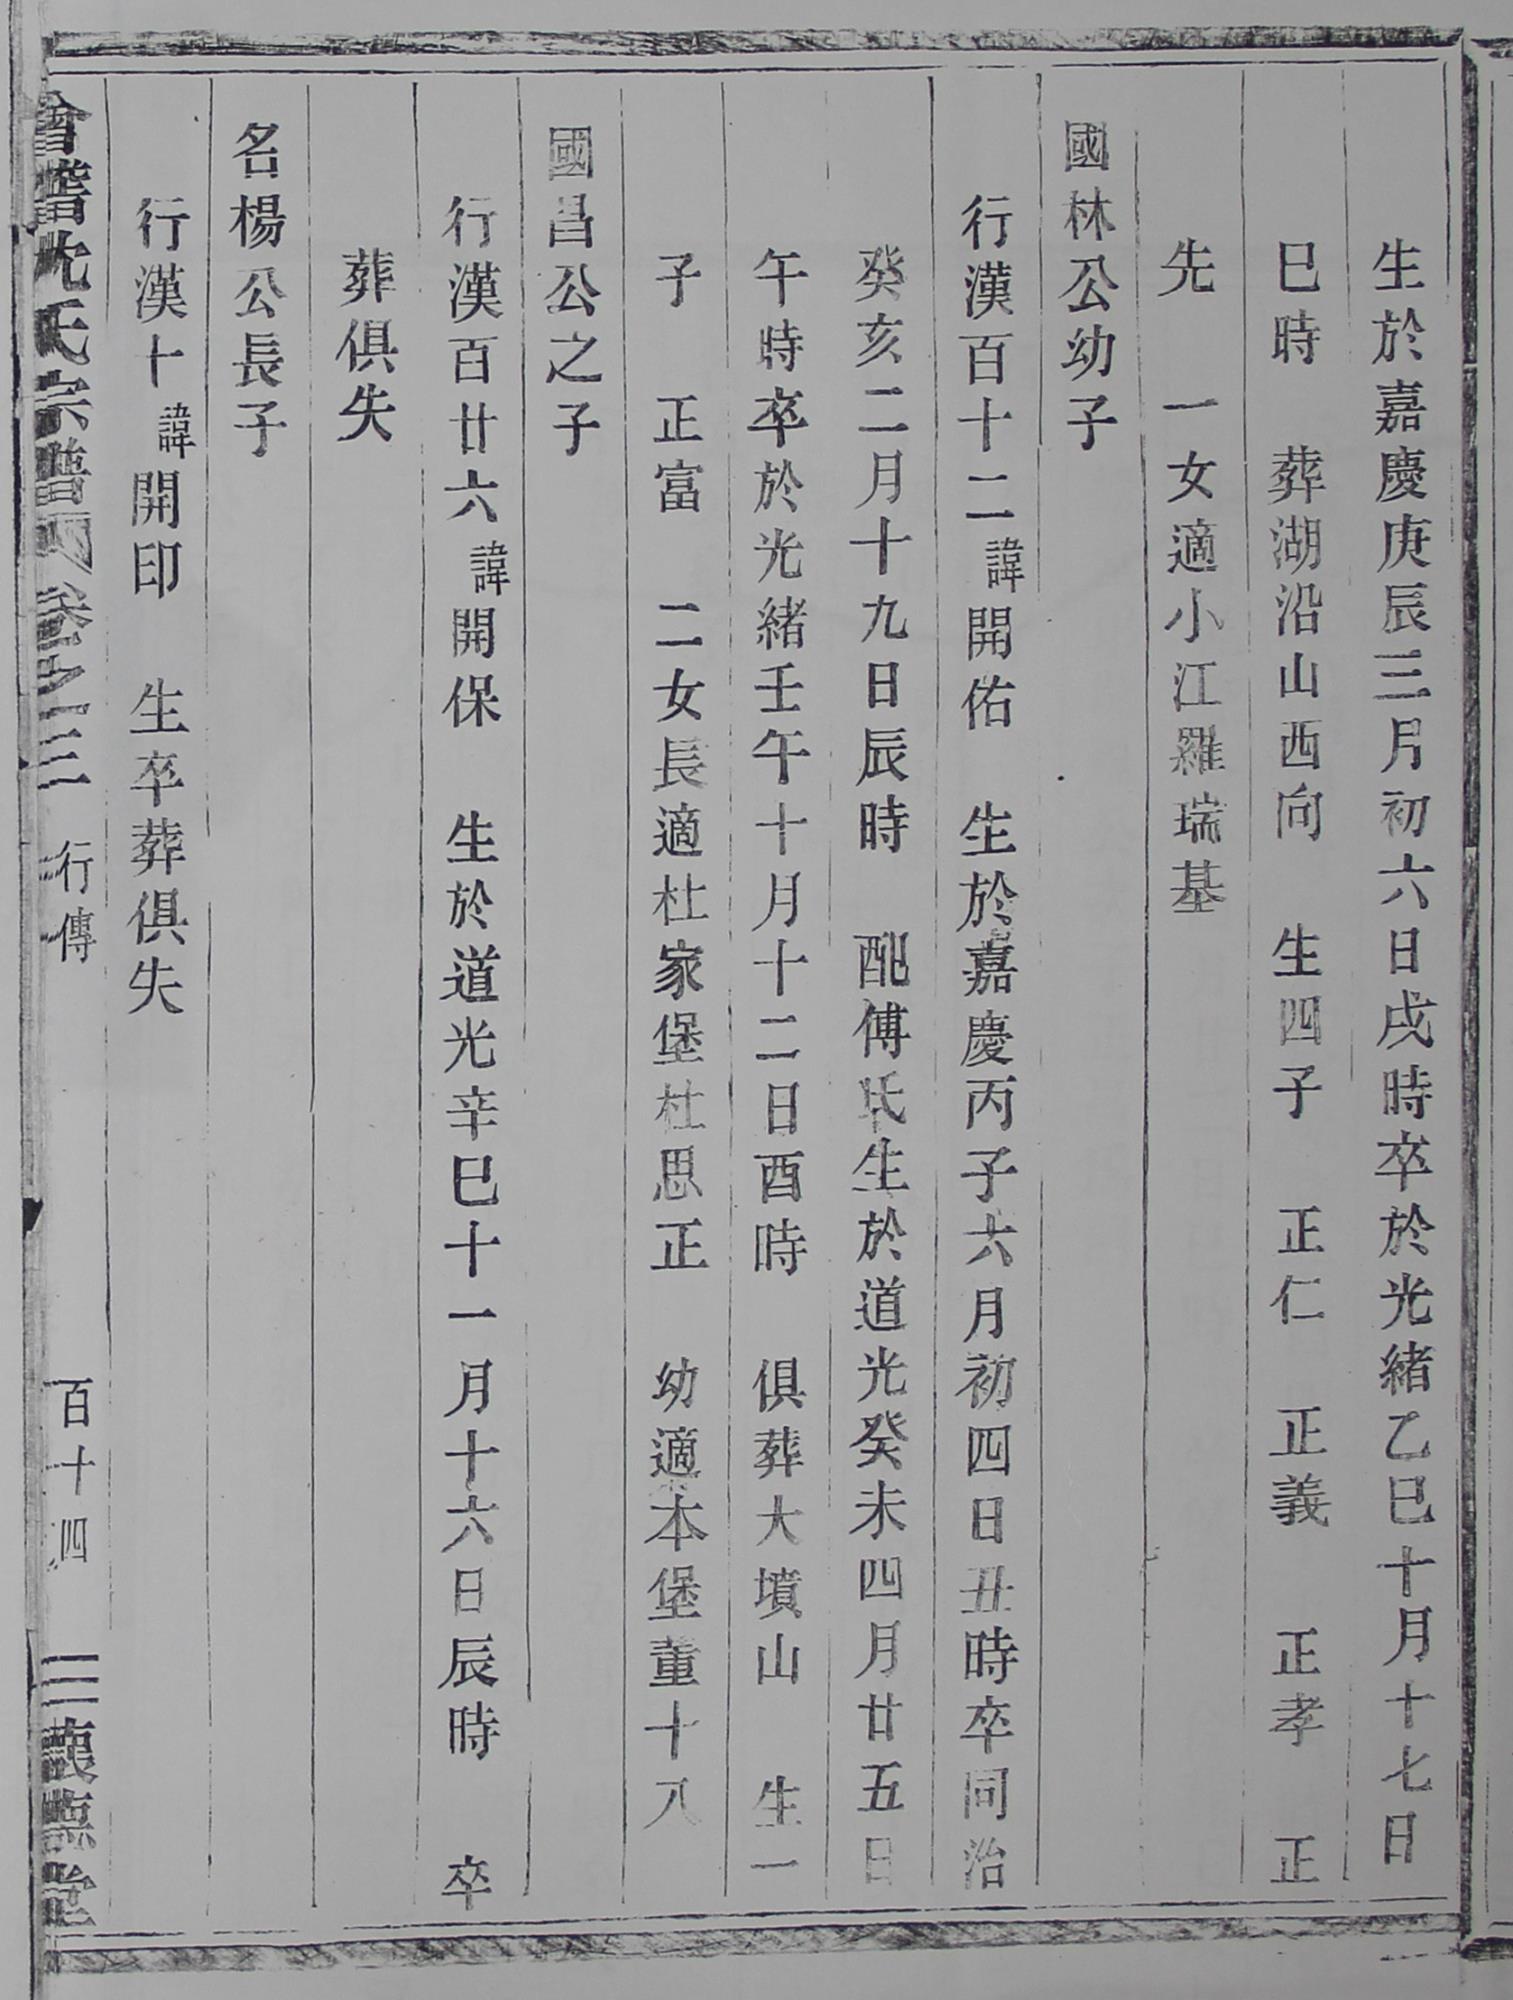 生於嘉慶庚辰三月初六日戌時卒於光緒乙巳十月十七日
巳時　葬湖沿山西向　生四子　正仁　正義　正孝　正
先　一女適小江羅瑞基
國林公幼子
行漢百十二諱開佑　生於嘉慶丙子六月初四日丑時卒同治
癸亥二月十九日辰時　配傅氏生於道光癸未四月廿五日
午時卒於光緒壬午十月十二日酉時　俱葬大墳山　生一
子　正富　二女長適杜家堡杜思正　幼適本堡董十八
國昌公之子
行漢百廿六諱開保　生於道光辛巳十一月十六日辰時　卒
葬俱失
名楊公長子
行漢十諱開印　生卒葬俱失
會稽沈氏宗譜　卷之三　行傳　百十四　德堂